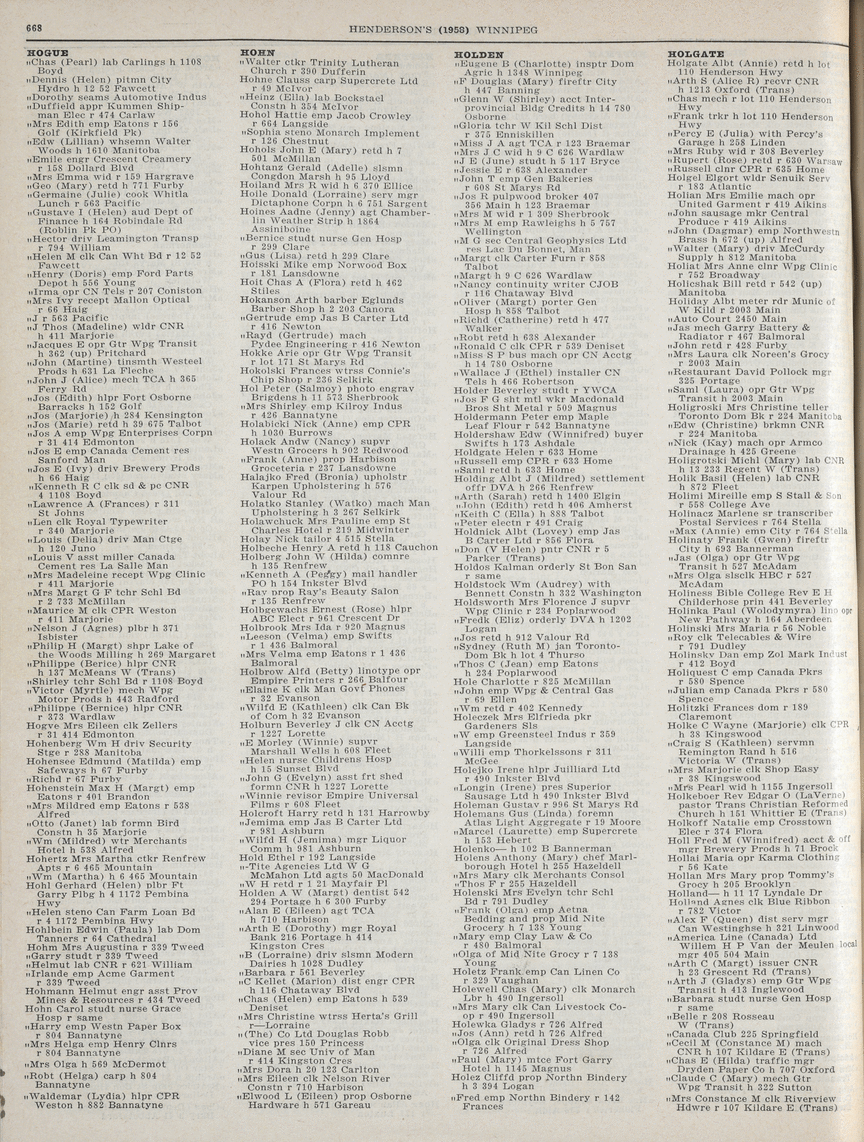 668
HENDERSON'S (1958) WINNIPEG
HOGUE
"Chas (Pearl) lab Carlings h 1108
Boyd
"Dennis (Helen) pitmn City
Hydro h 12 52 Fawcett
"Dorothy seams Automotive Indus
"Duffield appr Kummen Ship-
man Elec r 474 Carlaw
"Mrs Edith emp Eatons r 156
Golf (Kirkfield Pk)
"Edw (Lillian) whsemn Walter
Woods h 1610 Manitoba
"Emile engr Crescent Creamery
r 158 Dollard Blvd
"Mrs Emma wid r 159 Hargrave
"Geo (Mary) retd h 771 Furby
"Germaine (Julie) cook Whitla
Lunch r 563 Pacific
"Gustave I (Helen) aud Dept of
Finance h 164 Robindale Rd
(Roblin Pk PO)
"Hector driv Leamington Transp
r 794 William
"Helen M clk Can Wht Bd r 12 52
Fawcett
"Henry (Doris) emp Ford Parts
Depot h 556 Young
"Irma opr CN Tels r 207 Coniston
"Mrs Ivy recept Mallon Optical
r 66 Haig
"J r 563 Pacific
"J Thos (Madeline) wldr CNR
h 411 Marjorie
"Jacques E opr Gtr Wpg Transit
h 362 (up) Pritchard
"John (Martine) tinsmth Westeel
Prods h 631 La Fleche
"John J (Alice) mech TCA h 365
Ferry Rd
"Jos (Edith) hlpr Fort Osborne
Barracks h 152 Golf
"Jos (Marjorie) h 284 Kensington
"Jos (Marie) retd h 39 675 Talbot
"Jos A emp Wpg Enterprises Corpn
r 31 414 Edmonton
"Jos E emp Canada Cement res
Sanford Man
"Jos E (Ivy) driv Brewery Prods
h 66 Haig
"Kenneth R C clk sd & pc CNR
4 1108 Boyd
"Lawrence A (Frances) r 311
St Johns
"Len clk Royal Typewriter
r 340 Marjorie
"Louis (Delia) driv Man Ctge
h 120 Juno
"Louis V asst miller Canada
Cement res La Salle Man
"Mrs Madeleine recept Wpg Clinic
r 411 Marjorie
"Mrs Margt G F tchr Schl Bd
r 2 733 McMillan
"Maurice M clk CPR Weston
r 411 Marjorie
"Nelson J (Agnes) plbr h 371
Isbister
"Philip H (Margt) shpr Lake of
the Woods Milling h 269 Margaret
"Philippe (Berice) hlpr CNR
h 137 McMeans W (Trans)
"Shirley tchr Schl Bd r 1108 Boyd
"Victor (Myrtle) mech Wpg
Motor Prods h 443 Radford
"Philippe (Bernice) hlpr CNR
r 373 Wardlaw
Hogve Mrs Eileen clk Zellers
r 31 414 Edmonton
Hohenberg Wm H driv Security
Stge r 288 Manitoba
Hohensee Edmund (Matilda) emp
Safeways h 67 Furby
"Richd r 67 Furby
Hohenstein Max H (Margt) emp
Eatons r 401 Brandon
"Mrs Mildred emp Eatons r 538
Alfred
"Otto (Janet) lab formn Bird
Constn h 35 Marjorie
"Wm (Mildred) wtr Merchants
Hotel h 538 Alfred
Hohertz Mrs Martha ctkr Renfrew
Apts r 6 465 Mountain
"Wm (Martha) h 6 465 Mountain
Hohl Gerhard (Helen) plbr Ft
Garry Plbg h 4 1172 Pembina
Hwy
"Helen steno Can Farm Loan Bd
r 4 1172 Pembina Hwy
Hohlbein Edwin (Paula) lab Dom
Tanners r 64 Cathedral
Hohm Mrs Augustina r 339 Tweed
"Garry studt r 339 Tweed
"Helmut lab CNR r 621 William
"Irlande emp Acme Garment
r 339 Tweed
Hohmann Helmut engr asst Prov
Mines & Resources r 434 Tweed
Hohn Carol studt nurse Grace
Hosp r same
"Harry emp Westn Paper Box
r 804 Bannatyne
"Mrs Helga emp Henry Clnrs
r 804 Bannatyne
"Mrs Olga h 569 McDermot
"Robt (Helga) carp h 804
Bannatyne
"Waldemar (Lydia) hlpr CPR
Weston h 882 Bannatyne
HOHN
"Walter ctkr Trinity Lutheran
Church r 390 Dufferin
Hohne Clauss carp Supercrete Ltd
r 49 McIvor
"Heinz (Ella) lab Bockstael
Constn h 354 McIvor
Hohol Hattie emp Jacob Crowley
r 664 Langside
"Sophia steno Monarch Implement
r 126 Chestnut
Hohols John E (Mary) retd h 7
501 McMillan
Hohtanz Gerald (Adelle) slsmn
Congdon Marsh h 95 Lloyd
Hoiland Mrs R wid h 6 370 Ellice
Hoile Donald (Lorraine) serv mgr
Dictaphone Corpn h 6 751 Sargent
Hoines Aadne (Jenny) agt Chamber-
lin Weather Strip h 1864
Assiniboine
"Bernice studt nurse Gen Hosp
r 299 Clare
"Gus (Lisa) retd h 299 Clare
Hoisski Mike emp Norwood Box
r 181 Lansdowne
Hoit Chas A (Flora) retd h 462
Stiles
Hokanson Arth barber Eglunds
Barber Shop h 2 203 Canora
"Gertrude emp Jas B Carter Ltd
r 416 Newton
"Rayd (Gertrude) mach
Pydee Engineering r 416 Newton
Hokke Arie opr Gtr Wpg Transit
r lot 171 St Marys Rd
Hokolski Frances wtrss Connie's
Chip Shop r 236 Selkirk
Hol Peter (Salmos) photo engrav
Brigdens h 11 573 Sherbrook
"Mrs Shirley emp Kilroy Indus
r 426 Bannatyne
Holabicki Nick (Anne) emp CPR
h 1030 Burrows
Holack Andw (Nancy) supvr
Westn Grocers h 902 Redwood
"Frank (Anne) prop Harbison
Groceteria r 237 Lansdowne
Halajko Fred (Bronia) upholstr
Karpen Upholstering h 576
Valour Rd
Holatko Stanley (Walko) mach Man
Upholstering h 3 267 Selkirk
Holawchuck Mrs Pauline emp St
Charles Hotel r 219 Midwinter
Holay Nick tailor 4 515 Stella
Holbeche Henry A retd h 118 Cauchon
Holberg John W (Hilda) comnre
h 135 Renfrew
"Kenneth A (Peggy) mail handler
PO h 154 Inkster Blvd
"Ray prop Ray's Beauty Salon
r 135 Renfrew
Holbgewachs Ernest (Rose) hlpr
ABC Elect r 961 Crescent Dr
Holbrook Mrs Ida r 920 Magnus
"Leeson (Velma) emp Swifts
r 1 436 Balmoral
"Mrs Velma emp Eatons r 1 436
Balmoral
Holbrow Alfd (Betty) linotype opr
Empire Printers r 266 Balfour
"Elaine K clk Man Govt Phones
r 32 Evanson
"Wilfd E (Kathleen) clk Can Bk
of Com h 32 Evanson
Holburn Beverley J clk CN Acctg
r 1227 Lorette
"E Morley (Winnie) supvr
Marshall Wells h 608 Fleet
"Helen nurse Childrens Hosp
h 15 Sunset Blvd
"John G (Evelyn) asst frt shed
formn CNR h 1227 Lorette
"Winnie revisor Empire Universal
Films r 608 Fleet
Holcroft Harry retd h 131 Harrowby
"Jemima emp Jas B Carter Ltd
r 981 Ashburn
"Wilfd H (Jemima) mgr Liquor
Comm h 981 Ashburn
Hold Ethel r 192 Langside
"-Tite Agencies Ltd W G
McMahon Ltd agts 50 MacDonald
"W H retd r 1 21 Mayfair Pl
Holden A W (Margt) dentist 542
294 Portage h 6 300 Furby
"Alan E (Eileen) agt TCA
h 710 Harbison
"Arth E (Dorothy) mgr Royal
Bank 216 Portage h 414
Kingston Cres
"B (Lorraine) driv slsmn Modern
Dairies h 1028 Dudley
"Barbara r 561 Beverley
"C Kellet (Marion) dist engr CPR
h 116 Chataway Blvd
"Chas (Helen) emp Eatons h 539
Deniset
"Mrs Christine wtrss Herta's Grill
r—Lorraine
"(The) Co Ltd Douglas Robb
vice pres 150 Princess
"Diane M sec Univ of Man
r 414 Kingston Cres
"Mrs Dora h 20 123 Carlton
"Mrs Eileen clk Nelson River
Constn r 710 Harbison
"Elwood L (Eileen) prop Osborne
Hardware h 571 Gareau
HOLDEN
"Eugene B (Charlotte) insptr Dom
Agric h 1348 Winnipeg
"F Douglas (Mary) fireftr City
h 447 Banning
"Glenn W (Shirley) acct Inter-
provincial Bldg Credits h 14 780
Osborne
"Gloria tchr W Kil Schl Dist
r 375 Enniskillen
"Miss J A agt TCA r 123 Braemar
"Mrs J C wid h 9 C 626 Wardlaw
"J E (June) studt h 5 117 Bryce
"Jessie E r 638 Alexander
"John T emp Gen Bakeries
r 608 St Marys Rd
"Jos R pulpwood broker 407
356 Main h 123 Braemar
"Mrs M wid r 1 309 Sherbrook
"Mrs M emp Rawleighs h 5 757
Wellington
"M G sec Central Geophysics Ltd
res Lac Du Bonnet, Man
"Margt clk Carter Furn r 858
Talbot
"Margt h 9 C 626 Wardlaw
"Nancy continuity writer CJOB
r 116 Chataway Blvd
"Oliver (Margt) porter Gen
Hosp h 858 Talbot
"Richd (Catherine) retd h 477
Walker
"Robt retd h 638 Alexander
"Ronald C clk CPR r 539 Deniset
"Miss S P bus mach opr CN Acctg
h 14 780 Osborne
"Wallace J (Ethel) installer CN
Tels h 466 Robertson
Holder Beverley studt r YWCA
"Jos F G sht mtl wkr Macdonald
Bros Sht Metal r 509 Magnus
Holdermann Peter emp Maple
Leaf Flour r 542 Bannatyne
Holdershaw Edw (Winnifred) buyer
Swifts h 173 Ashdale
Holdgate Helen r 633 Home
"Russell emp CPR r 633 Home
"Saml retd h 633 Home
Holding Albt J (Mildred) settlement
offr DVA h 266 Renfrew
"Arth (Sarah) retd h 1400 Elgin
"John (Edith) retd h 406 Amherst
"Keith C (Ella) h 888 Talbot
"Peter electn r 491 Craig
Holdnick Albt (Lovey) emp Jas
B Carter Ltd r 856 Flora
"Don (V Helen) pntr CNR r 5
Parker (Trans)
Holdos Kalman orderly St Bon San
r same
Holdstock Wm (Audrey) with
Bennett Constn h 332 Washington
Holdsworth Mrs Florence J supvr
Wpg Clinic r 234 Poplarwood
"Fredk (Eliz) orderly DVA h 1202
Logan
"Jos retd h 912 Valour Rd
"Sydney (Ruth M) jan Toronto-
Dom Bk h lot 4 Thurso
"Thos C (Jean) emp Eatons
h 234 Poplarwood
Hole Charlotte r 825 McMillan
"John emp Wpg & Central Gas
r 69 Ellen
"Wm retd r 402 Kennedy
Holeczek Mrs Elfrieda pkr
Gardeners Sls
"W emp Greensteel Indus r 359
Langside
"Willi emp Thorkelssons r 311
McGee
Holejko Irene hlpr Juilliard Ltd
r 490 Inkster Blvd
"Longin (Irene) pres Superior
Sausage Ltd h 490 Inkster Blvd
Holeman Gustav r 996 St Marys Rd
Holemans Gus (Linda) foremn
Atlas Light Aggregate r 19 Moore
"Marcel (Laurette) emp Supercrete
r 153 Hebert
Holenko— h 102 B Bannerman
Holens Anthony (Mary) chef Marl-
borough Hotel h 255 Hazeldell
"Mrs Mary clk Merchants Consol
"Thos F r 255 Hazeldell
Holenski Mrs Evelyn tchr Schl
Bd r 791 Dudley
"Frank (Olga) emp Aetna
Bedding and prop Mid Nite
Grocery h 7 138 Young
"Mary emp Clay Law & Co
r 480 Balmoral
"Olga of Mid Nite Grocy r 7 138
Young
Holetz Frank emp Can Linen Co
r 329 Vaughan
Holewell Chas (Mary) clk Monarch
Lbr h 490 Ingersoll
"Mrs Mary clk Can Livestock Co-
op r 490 Ingersoll
Holewka Gladys r 726 Alfred
"Jos (Ann) retd h 726 Alfred
"Olga clk Original Dress Shop
r 726 Alfred
"Paul (Mary) mtce Fort Garry
Hotel h 1145 Magnus
Holez Cliffd prop Northn Bindery
h 3 394 Logan
"Fred emp Northn Bindery r 142
Frances
HOLGATE
Holgate Albt (Annie) retd h lot
110 Henderson Hwy
"Arth S (Alice R) recvr CNR
h 1213 Oxford (Trans)
"Chas mech r lot 110 Henderson
Hwy
"Frank trkr h lot 110 Henderson
Hwy
"Percy E (Julia) with Percy's
Garage h 258 Linden
"Mrs Ruby wid r 308 Beverley
"Rupert (Rose) retd r 630 Warsaw
"Russell clnr CPR r 635 Home
Holgel Elgort wldr Senuik Serv
r 183 Atlantic
Holian Mrs Emilie mach opr
United Garment r 419 Aikins
"John sausage mkr Central
Produce r 419 Aikins
"John (Dagmar) emp Northwestn
Brass h 672 (up) Alfred
"Walter (Mary) driv McCurdy
Supply h 812 Manitoba
Holiat Mrs Anne clnr Wpg Clinic
r 752 Broadway
Holicshak Bill retd r 542 (up)
Manitoba
Holiday Albt meter rdr Munic of
W Kild r 2003 Main
"Auto Court 2450 Main
"Jas mech Garry Battery &
Radiator r 467 Balmoral
"John retd r 428 Furby
"Mrs Laura clk Noreen's Grocy
r 2003 Main
"Restaurant David Pollock mgr
325 Portage
"Saml (Laura) opr Gtr Wpg
Transit h 2003 Main
Holigroski Mrs Christine teller
Toronto Dom Bk r 224 Manitoba
"Edw (Christine) brkmn CNR
r 224 Manitoba
"Nick (Kay) mach opr Armco
Drainage h 425 Greene
Holigrotski Michl (Mary) lab CNR
h 13 233 Regent W (Trans)
Holik Basil (Helen) lab CNR
h 872 Fleet
Holimi Mireille emp S Stall & Son
r 558 College Ave
Holinacz Marlene sr transcriber
Postal Services r 764 Stella
"Max (Annie) emn City r 764 Stella
Holinaty Frank (Gwen) fireftr
City h 693 Bannerman
"Jas (Olga) opr Gtr Wpg
Transit h 527 McAdam
"Mrs Olga slsclk HBC r 527
McAdam
Holiness Bible College Rev E H
Childerhose prin 441 Beverley
Holinka Paul (Wolodymyra) lino opr
New Pathway h 164 Aberdeen
Holinski Mrs Maria r 56 Noble
"Roy clk Telecables & Wire
r 791 Dudley
Holinsky Dan emp Zol Mark Indust
r 412 Boyd
Holiquest C emp Canada Pkrs
r 580 Spence
"Julian emp Canada Pkrs r 580
Spence
Holitzki Frances dom r 189
Claremont
Holke C Wayne (Marjorie) clk CPR
h 38 Kingswood
"Craig S (Kathleen) servmn
Remington Rand h 516
Victoria W (Trans)
"Mrs Marjorie clk Shop Easy
r 38 Kingswood
"Mrs Pearl wid h 1155 Ingersoll
Holkeboer Rev Edgar O (LaVerne)
pastor Trans Christian Reformed
Church h 151 Whittier E (Trans)
Holkoff Natalie emp Crosstown
Elec r 374 Flora
Holl Fred M (Winnifred) acct & off
mgr Brewery Prods h 71 Brock
Hollai Maria opr Karma Clothing
r 56 Kate
Hollan Mrs Mary prop Tommy's
Grocy h 205 Brooklyn
Holland— h 11 17 Lyndale Dr
Holland Agnes clk Blue Ribbon
r 782 Victor
"Alex F (Queen) dist serv mgr
Can Westinghse h 321 Linwood
"America Line (Canada) Ltd
Willem H P Van der Meulen local
mgr 405 504 Main
"Arth C (Margt) issuer CNR
h 23 Grescent Rd (Trans)
"Arth J (Gladys) emp Gtr Wpg
Transit h 413 Inglewood
"Barbara studt nurse Gen Hosp
r same
"Belle r 208 Rosseau
W (Trans)
"Canada Club 225 Springfield
"Cecil M (Constance M) mach
CNR h 107 Kildare E (Trans)
"Chas E (Hilda) traffic mgr
Dryden Paper Co h 707 Oxford
"Claude C (Mary) mech Gtr
Wpg Transit h 322 Sutton
"Mrs Constance M clk Riverview
Hdwre r 107 Kildare E (Trans)